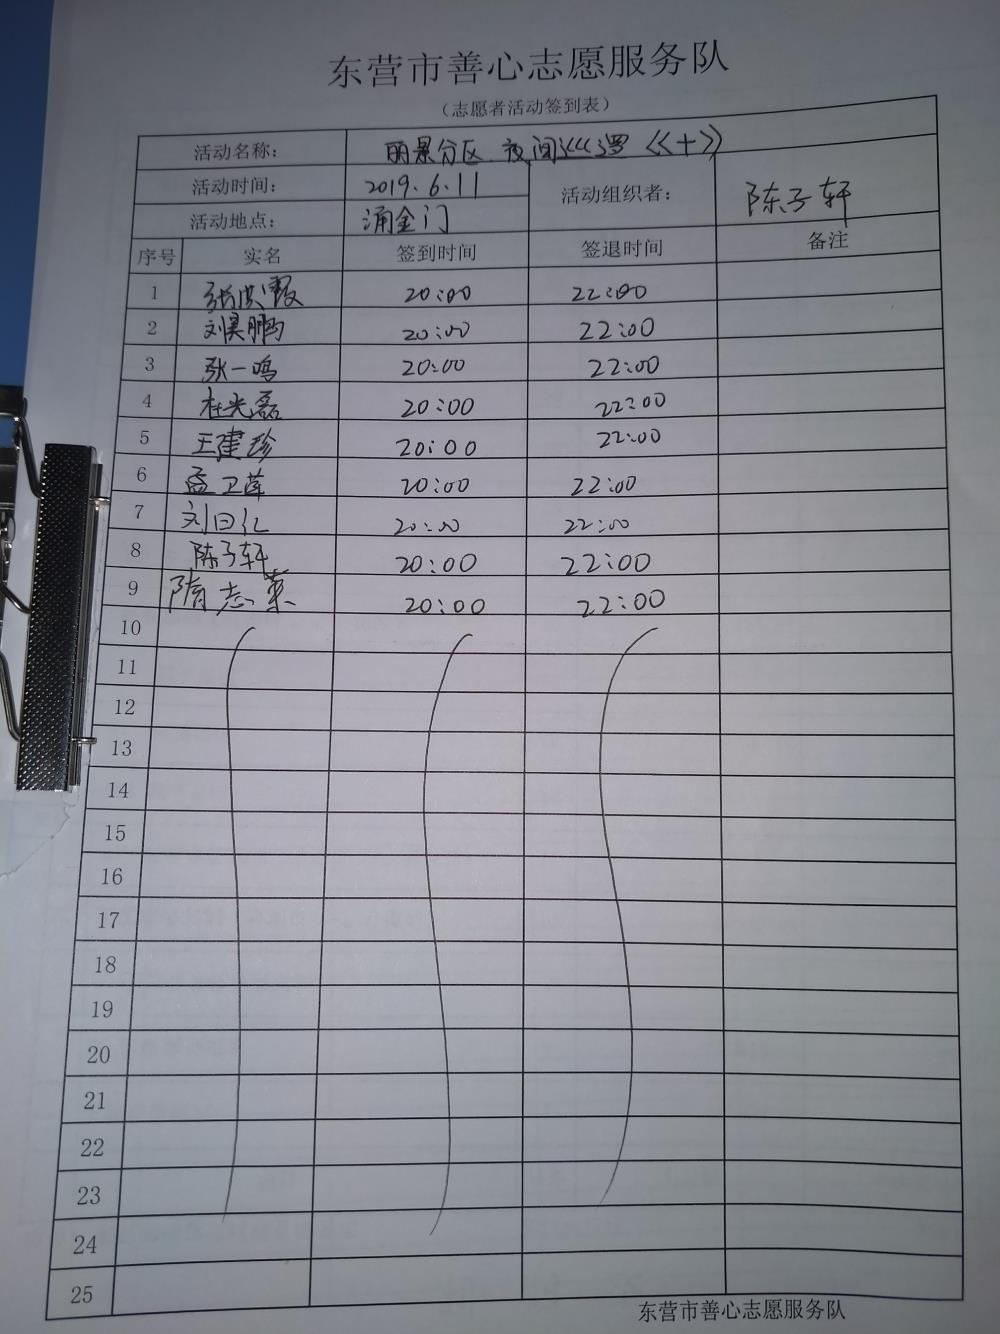 东营市善心志愿服务队
（志愿者活动签到表）
活动名称： 丽景分区 夜间巡逻 《十》
活动时间： 2019.6.11 活动组织者： 陈子轩
活动地点： 涌金门
序号 实名 签到时间 签退时间 备注
1 张洪霞 20:00 22:00
2 刘昊鹏 20:00 22:00
3 张一鸣 20:00 22:00
4 杜光磊 20:00 22:00
5 王建珍 20:00 22:00
6 孟卫萍 20:00 22:00
7 刘曰仁 20:00 22:00
8 陈子轩 20:00 22:00
9 隋志 20:00 22:00
10
11
12
13
14
15
16
17
18
19
20
21
22
23
24
25
东营市善心志愿服务队